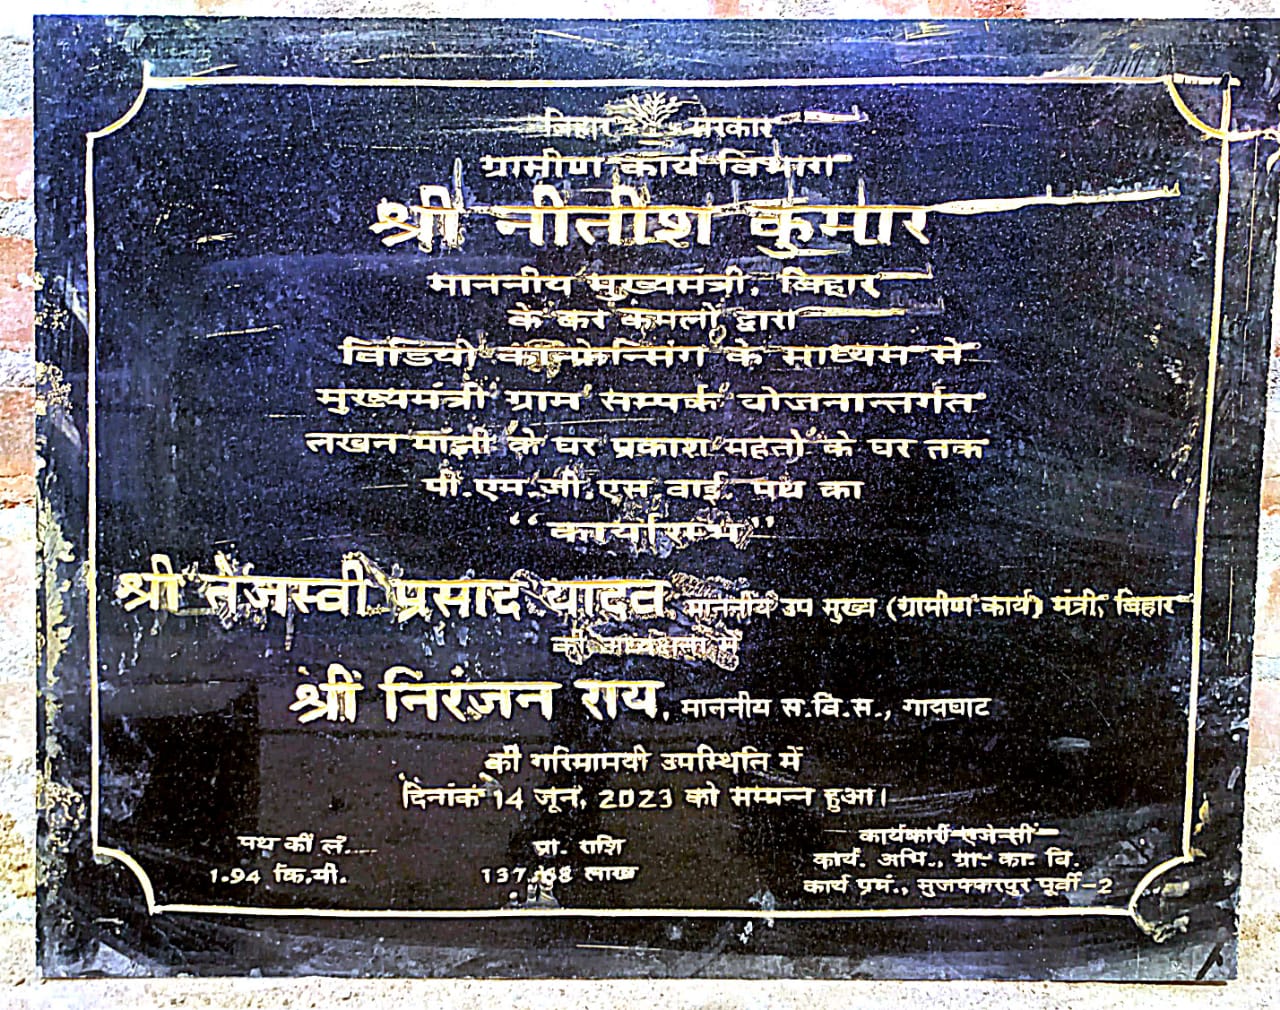 बिहार सरकार
ग्रामीण कार्य विभाग
श्री नीतीश कुमार
माननीय मुख्यमंत्री, बिहार
के कर कमलों द्वारा
विडियो कॉन्फ्रेन्सिंग के माध्यम से
मुख्यमंत्री ग्राम सम्पर्क योजनान्तर्गत
लखन मांझी के घर प्रकाश महतो के घर तक
पी.एम.जी.एस.वाई. पथ का
“कार्यारम्भ”
श्री तेजस्वी प्रसाद यादव, माननीय उप मुख्य (ग्रामीण कार्य) मंत्री, बिहार
की अध्यक्षता में
श्री निरंजन राय, माननीय स.वि.स., गायघाट
की गरिमामयी उपस्थिति में
दिनांक 14 जून, 2023 को सम्पन्न हुआ।
पथ की लं.... प्रा. राशि कार्यकारी एजेन्सी
1.94 कि.मी. लाख कार्य. अभि., ग्रा. का. वि.
कार्य प्रमं., मुजफ्फरपुर पूर्वी-2